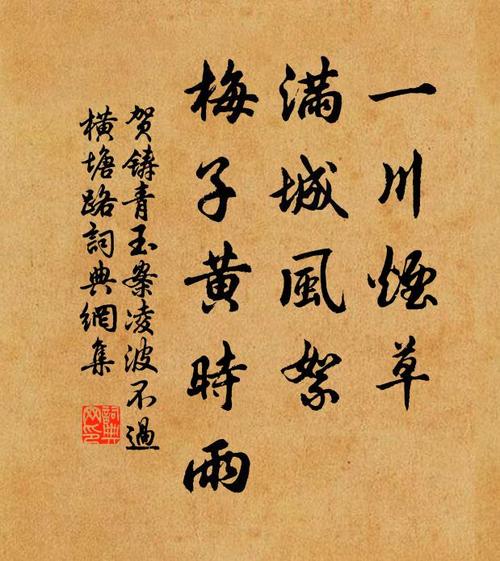 一川煙草
滿城風絮
梅子黃時雨
賀鑄青玉案凌波不過
橫塘路詞典網集
詞典網印